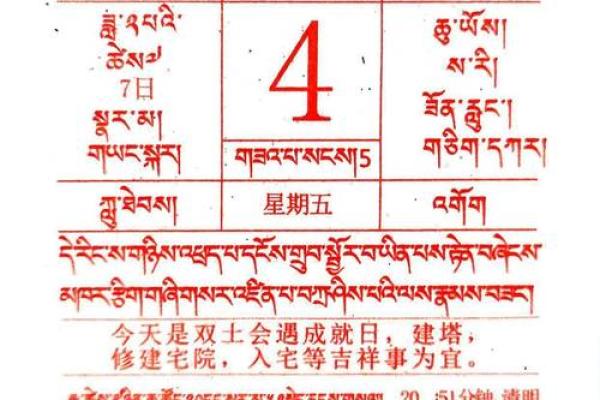 ཟླ་༢པའི་
ཚེས༧
7日
སྣར་མ།
གཡང་སྐར།
4
གཟའ་པ་སངས།5
ཆུ་ཡོས།
ས་རི།
ཟོན་རླུང་།
གཅིག་དཀར།
ཀླུ་ཐེབས།
星期五
འགོག
དེ་རིང་ས་གཉིས་འཕྲད་པ་དངོས་གྲུབ་སྦྱོར་བ་ཡིན་པས་རྟེན་བཞེངས་
མཁར་རྩིག་གཞི་གསར་འཛིན་པ་བཀྲ་ཤིས་པའི་ལས་རྣམས་བཟང།
今天是双土会遇成就日，建塔，
修建宅院，入宅等吉祥事为宜。
20 :51分钟 清明